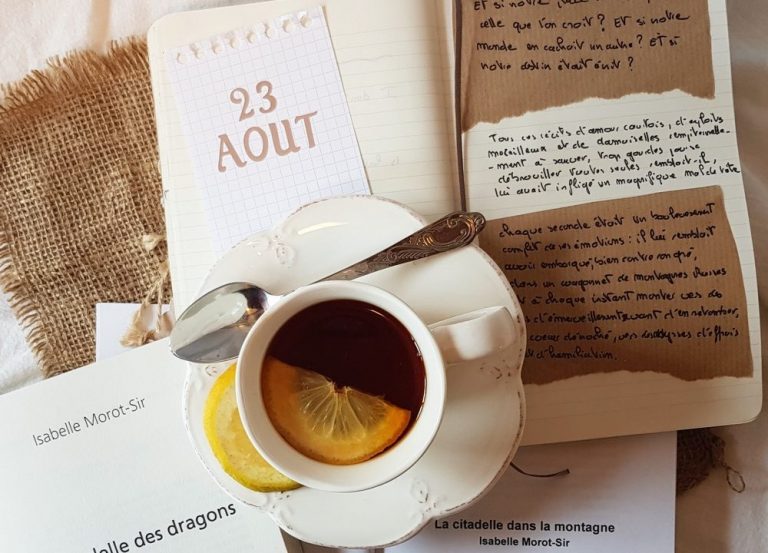 23
AOUT
Et si notre
celle que l'on croit ? Et si notre
monde en cachait un autre ? Et si
notre destin était écrit ?
Tous ces récits d'amour courtois, d'exploits
merveilleux et de damoiselles sempiternelle-
-ment à sauver, trop gourdes pour se
débrouiller toutes seules semblait-il,
lui avait infligé un magnifique mal de tête
Chaque seconde était un bouleversement
complet de ses émotions : il lui semblait
avoir embarqué, bien contre son gré,
dans un wagonnet de montagnes russes
à chaque instant monter vers des
d'émerveillement avant d'en retomber,
coeur décroché, vers des abysses d'effroi
d'humiliation.
Isabelle Morot-Sir
delle des dragons
La citadelle dans la montagne
Isabelle Morot-Sir